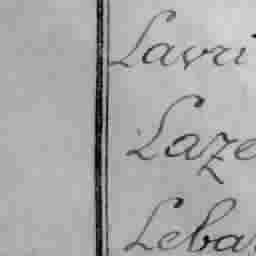 Lavri
Laze
Leba